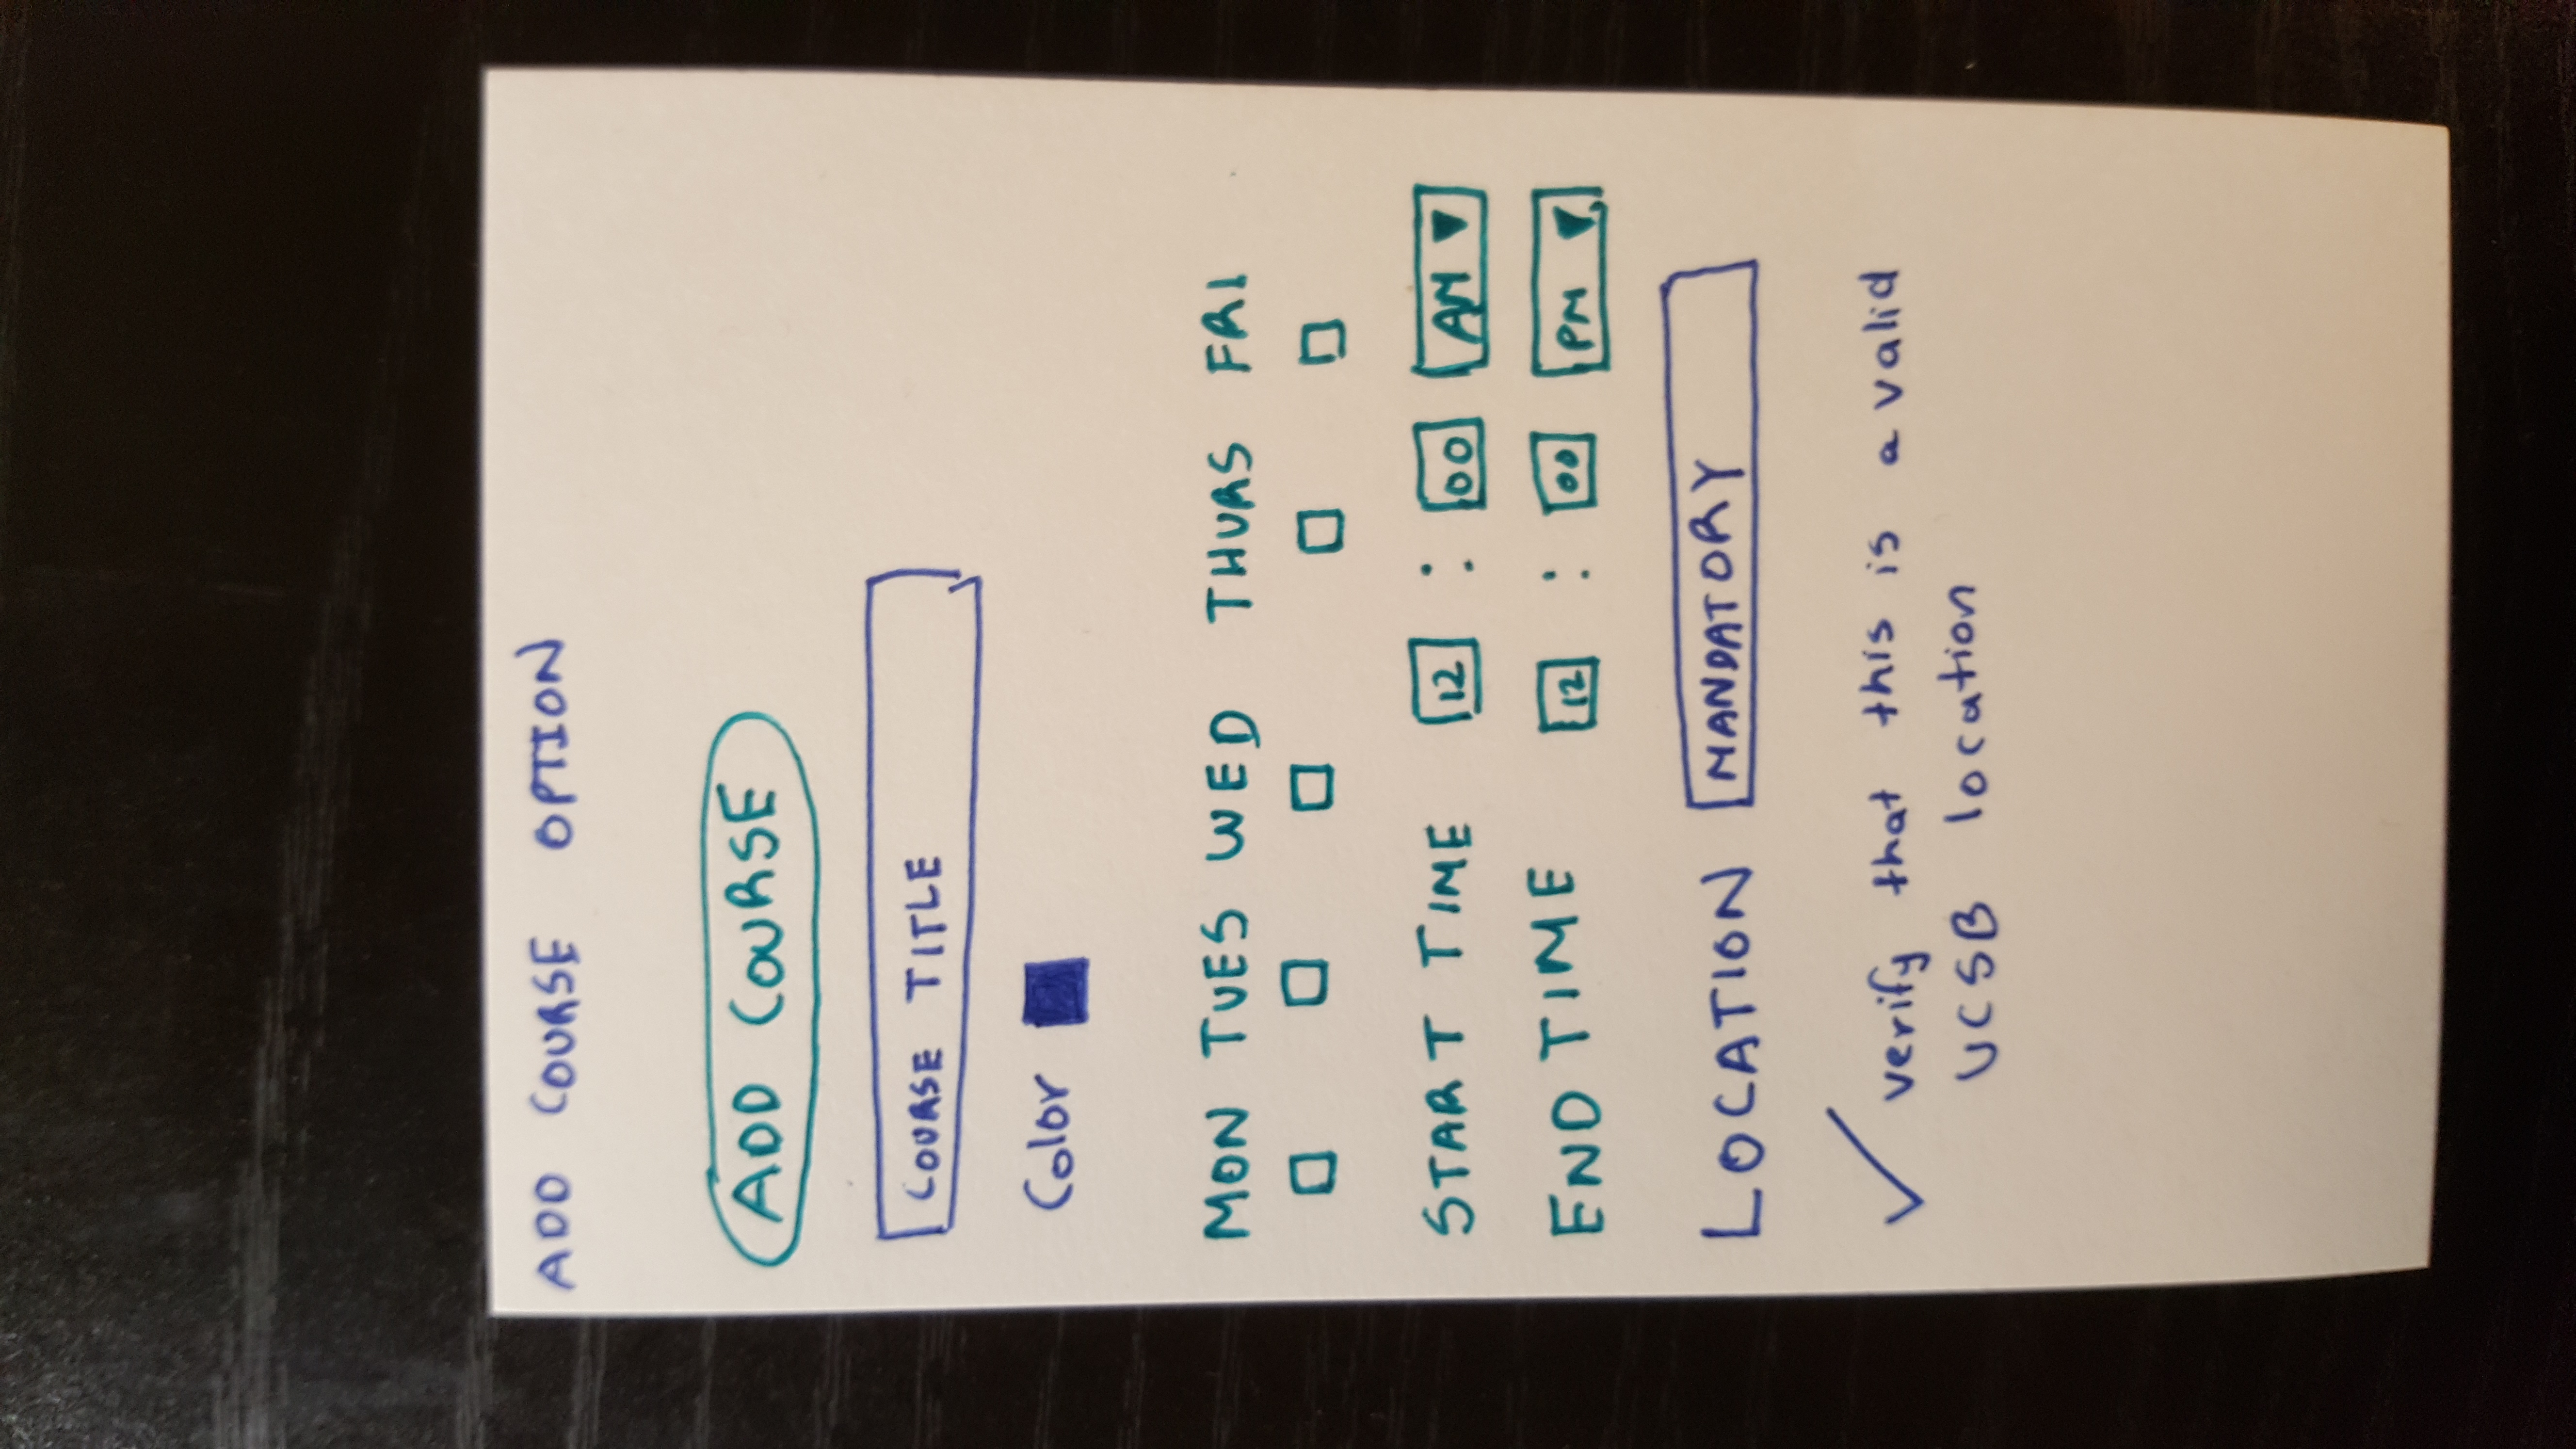 ADD COURSE OPTION
ADD COURSE
COURSE TITLE
Color
MON TUES WED THURS FRI
START TIME 12 : 00 AM
END TIME 12 : 00 PM
LOCATION MANDATORY
verify that this is a valid
UCSB location